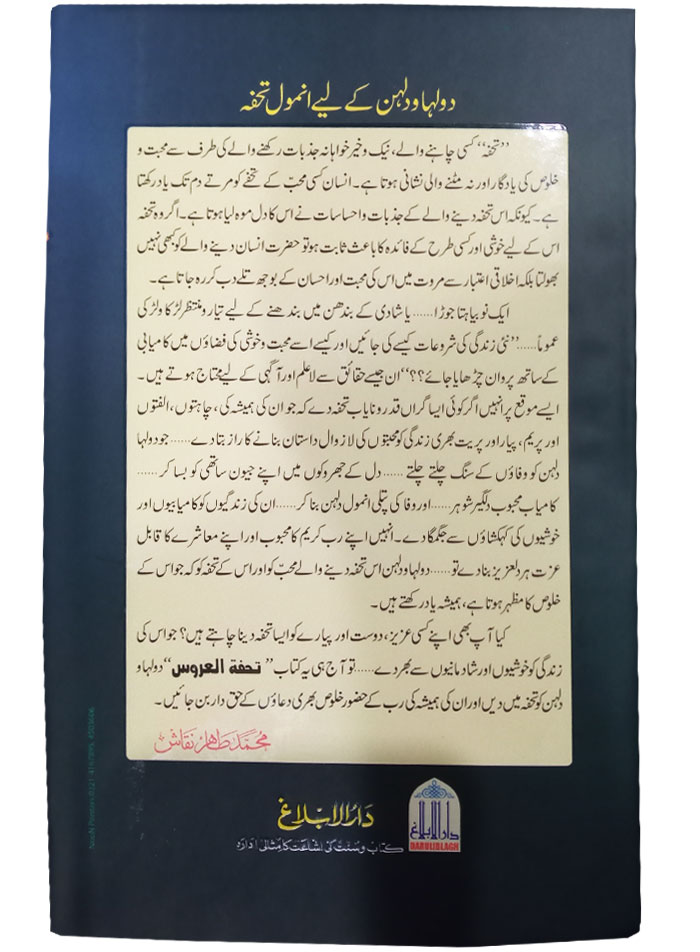 دولہا و دلہن کے لیے انمول تحفہ
”تحفہ“ کسی چاہنے والے، نیک و خیر خواہانہ جذبات رکھنے والے کی طرف سے محبت و
خلوص کی یادگار اور نہ مٹنے والی نشانی ہوتا ہے۔ انسان کسی محبّ کے تحفے کو مرتے دم تک یاد رکھتا
ہے۔ کیونکہ اس تحفہ دینے والے کے جذبات و احساسات نے اس کا دل موہ لیا ہوتا ہے۔ اگر وہ تحفہ
اس کے لیے خوشی اور کسی طرح کے فائدہ کا باعث ثابت ہو تو حضرت انسان دینے والے کو کبھی نہیں
بھولتا بلکہ اخلاقی اعتبار سے مروت میں اس کی محبت اور احسان کے بوجھ تلے دب کر رہ جاتا ہے۔
ایک نوبیاہتا جوڑا...... یا شادی کے بندھن میں بندھنے کے لیے تیار و منتظر لڑکا و لڑکی
عموماً...... ”نئی زندگی کی شروعات کیسے کی جائیں اور کیسے اسے محبت و خوشی کی فضاؤں میں کامیابی
کے ساتھ پروان چڑھایا جائے؟؟“ ان جیسے حقائق سے لاعلم اور آگہی کے لیے محتاج ہوتے ہیں۔
ایسے موقع پر انہیں اگر کوئی ایسا گراں قدر و نایاب تحفہ دے کہ جو ان کی ہمیشہ کی، چاہتوں، الفتوں
اور پریم، پیار اور پریت بھری زندگی کو محبتوں کی لازوال داستان بنانے کا راز بتا دے...... جو دولہا
دلہن کو وفاؤں کے سنگ چلتے چلتے ...... دل کے جھروکوں میں اپنے جیون ساتھی کو بسا کر......
کامیاب محبوب دلگیر شوہر...... اور وفا کی پتلی انمول دلہن بنا کر...... ان کی زندگیوں کو کامیابیوں اور
خوشیوں کی کہکشاؤں سے جگمگا دے۔ انہیں اپنے رب کریم کا محبوب اور اپنے معاشرے کا قابل
عزت ہر دلعزیز بنا دے تو...... دولہا و دلہن اس تحفہ دینے والے محبّ کو اور اس کے تحفہ کو کہ جو اس کے
خلوص کا مظہر ہوتا ہے، ہمیشہ یاد رکھتے ہیں۔
کیا آپ بھی اپنے کسی عزیز، دوست اور پیارے کو ایسا تحفہ دینا چاہتے ہیں؟ جو اس کی
زندگی کو خوشیوں اور شادمانیوں سے بھر دے...... تو آج ہی یہ کتاب ”تحفة العروس“ دولہا و
دلہن کو تحفہ میں دیں اور ان کی ہمیشہ کی رب کے حضور خلوص بھری دعاؤں کے حق دار بن جائیں۔
محمد طاہر نقاش
دار الابلاغ
کتاب و سنت کی اشاعت کا مثالی ادارہ
دار الابلاغ
DARULIBLAGH